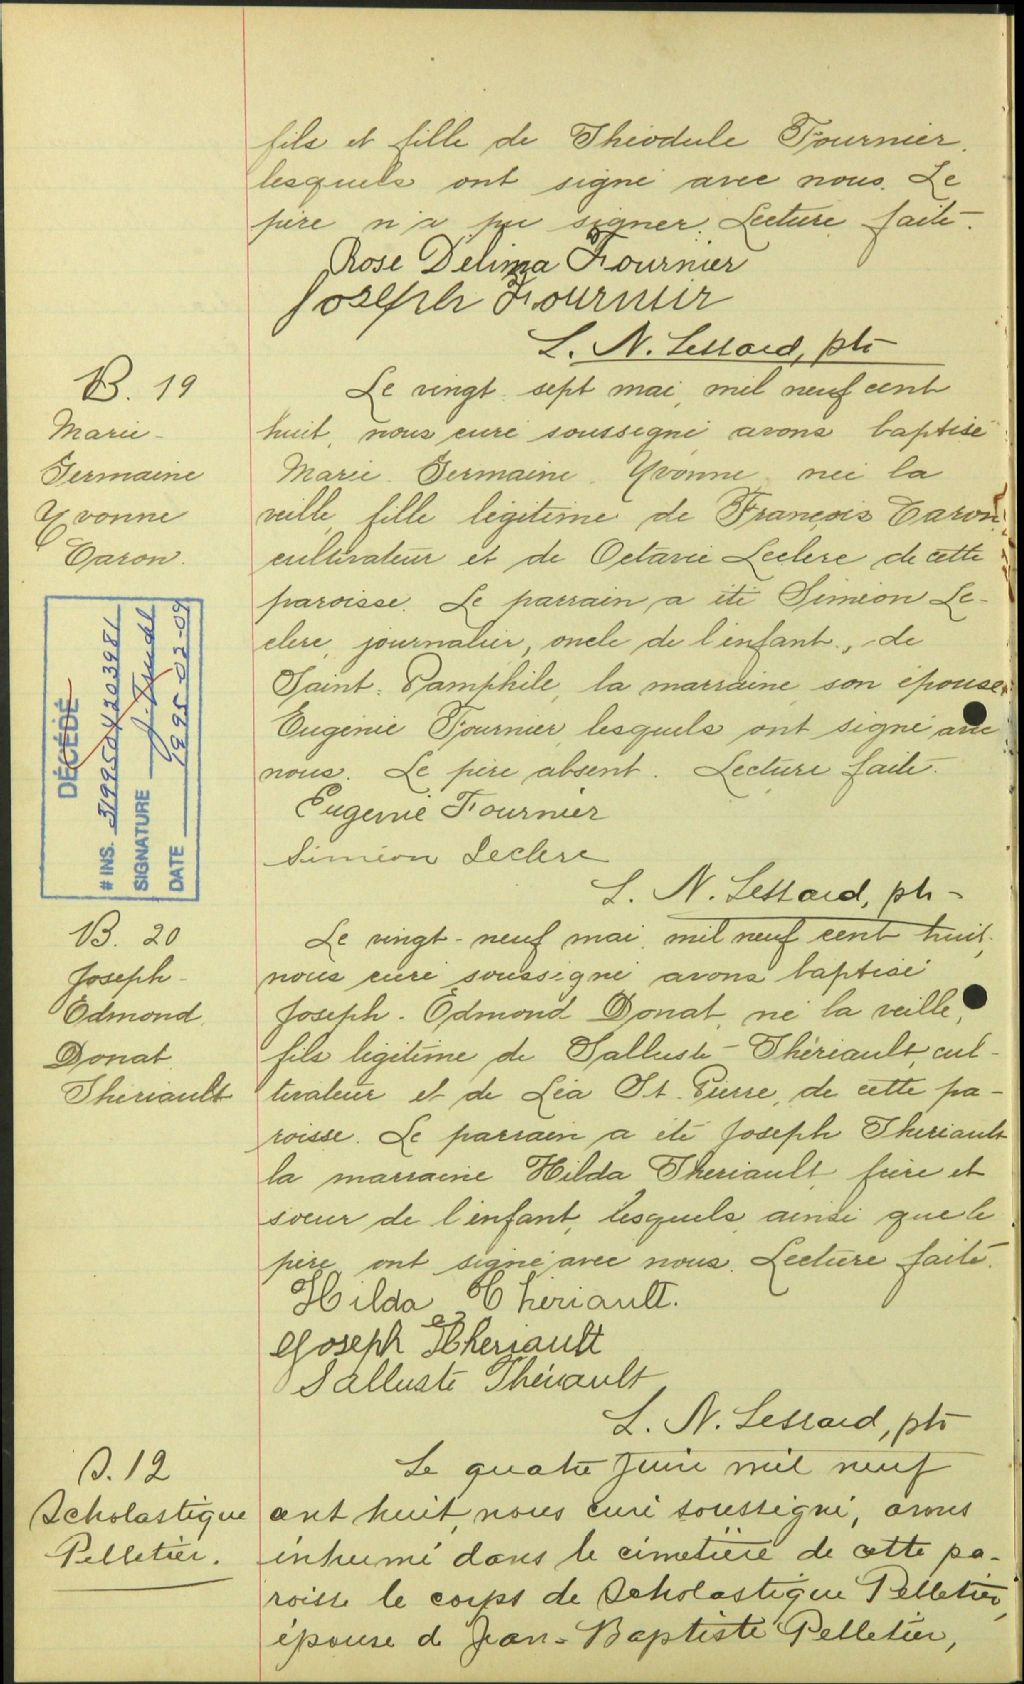 fils et fille de Théodule Fournier,
lesquels ont signé avec nous. Le
père n'a pu signer. Lecture faite.
Rose Delima Fournier
Joseph Fournier
L. N. Lessard, ptr
B. 19
Marie-
Germaine
Yvonne
Caron.
Le vingt-sept mai, mil neuf cent
huit, nous curé soussigné avons baptisé
Marie Germaine Yvonne, née la
veille, fille légitime de François Caron
cultivateur et de Octavie Leclerc de cette
paroisse. Le parrain a été Siméon Le-
clerc, journalier, oncle de l'enfant, de
Saint-Pamphile, la marraine son épouse
Eugénie Fournier lesquels ont signé avec
nous. Le père absent. Lecture faite.
Eugenie Fournier
Siméon Leclerc
L. N. Lessard, ptr
DÉCÉDÉ
# INS. 3199504203981
SIGNATURE
DATE 1995-02-09
B. 20
Joseph-
Edmond
Donat
Thériault
Le vingt-neuf mai, mil neuf cent huit,
nous curé soussigné avons baptisé
Joseph-Edmond Donat, né la veille,
fils légitime de Salluste Thériault, cul-
tivateur et de Léa St. Pierre, de cette pa-
roisse. Le parrain a été Joseph Thériault
la marraine Hilda Thériault, frère et
soeur de l'enfant, lesquels ainsi que le
père ont signé avec nous. Lecture faite.
Hilda Thériault.
Joseph Theriault
Salluste Thériault
L. N. Lessard, ptr
S. 12
Scholastique
Pelletier.
Le quatre juin mil neuf
cent huit, nous curé soussigné, avons
inhumé dans le cimetière de cette pa-
roisse le corps de Scholastique Pelletier,
épouse de Jean-Baptiste Pelletier,